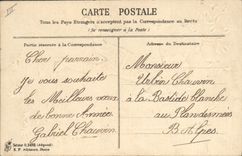 CARTE POSTALE
Tous les Pays Etrangers n'acceptent pas la Correspondance au Recto
(Se renseigner à la Poste)
Partie réservée à la Correspondance
Adresse du Destinataire
Cher parrain
Je vous souhaite
les Meilleurs vœux
de bonne Année
Gabriel Chauvin
Monsieur
Urbin Chauvin
à la Bastide blanche
au Plandesmires
B. Alpes